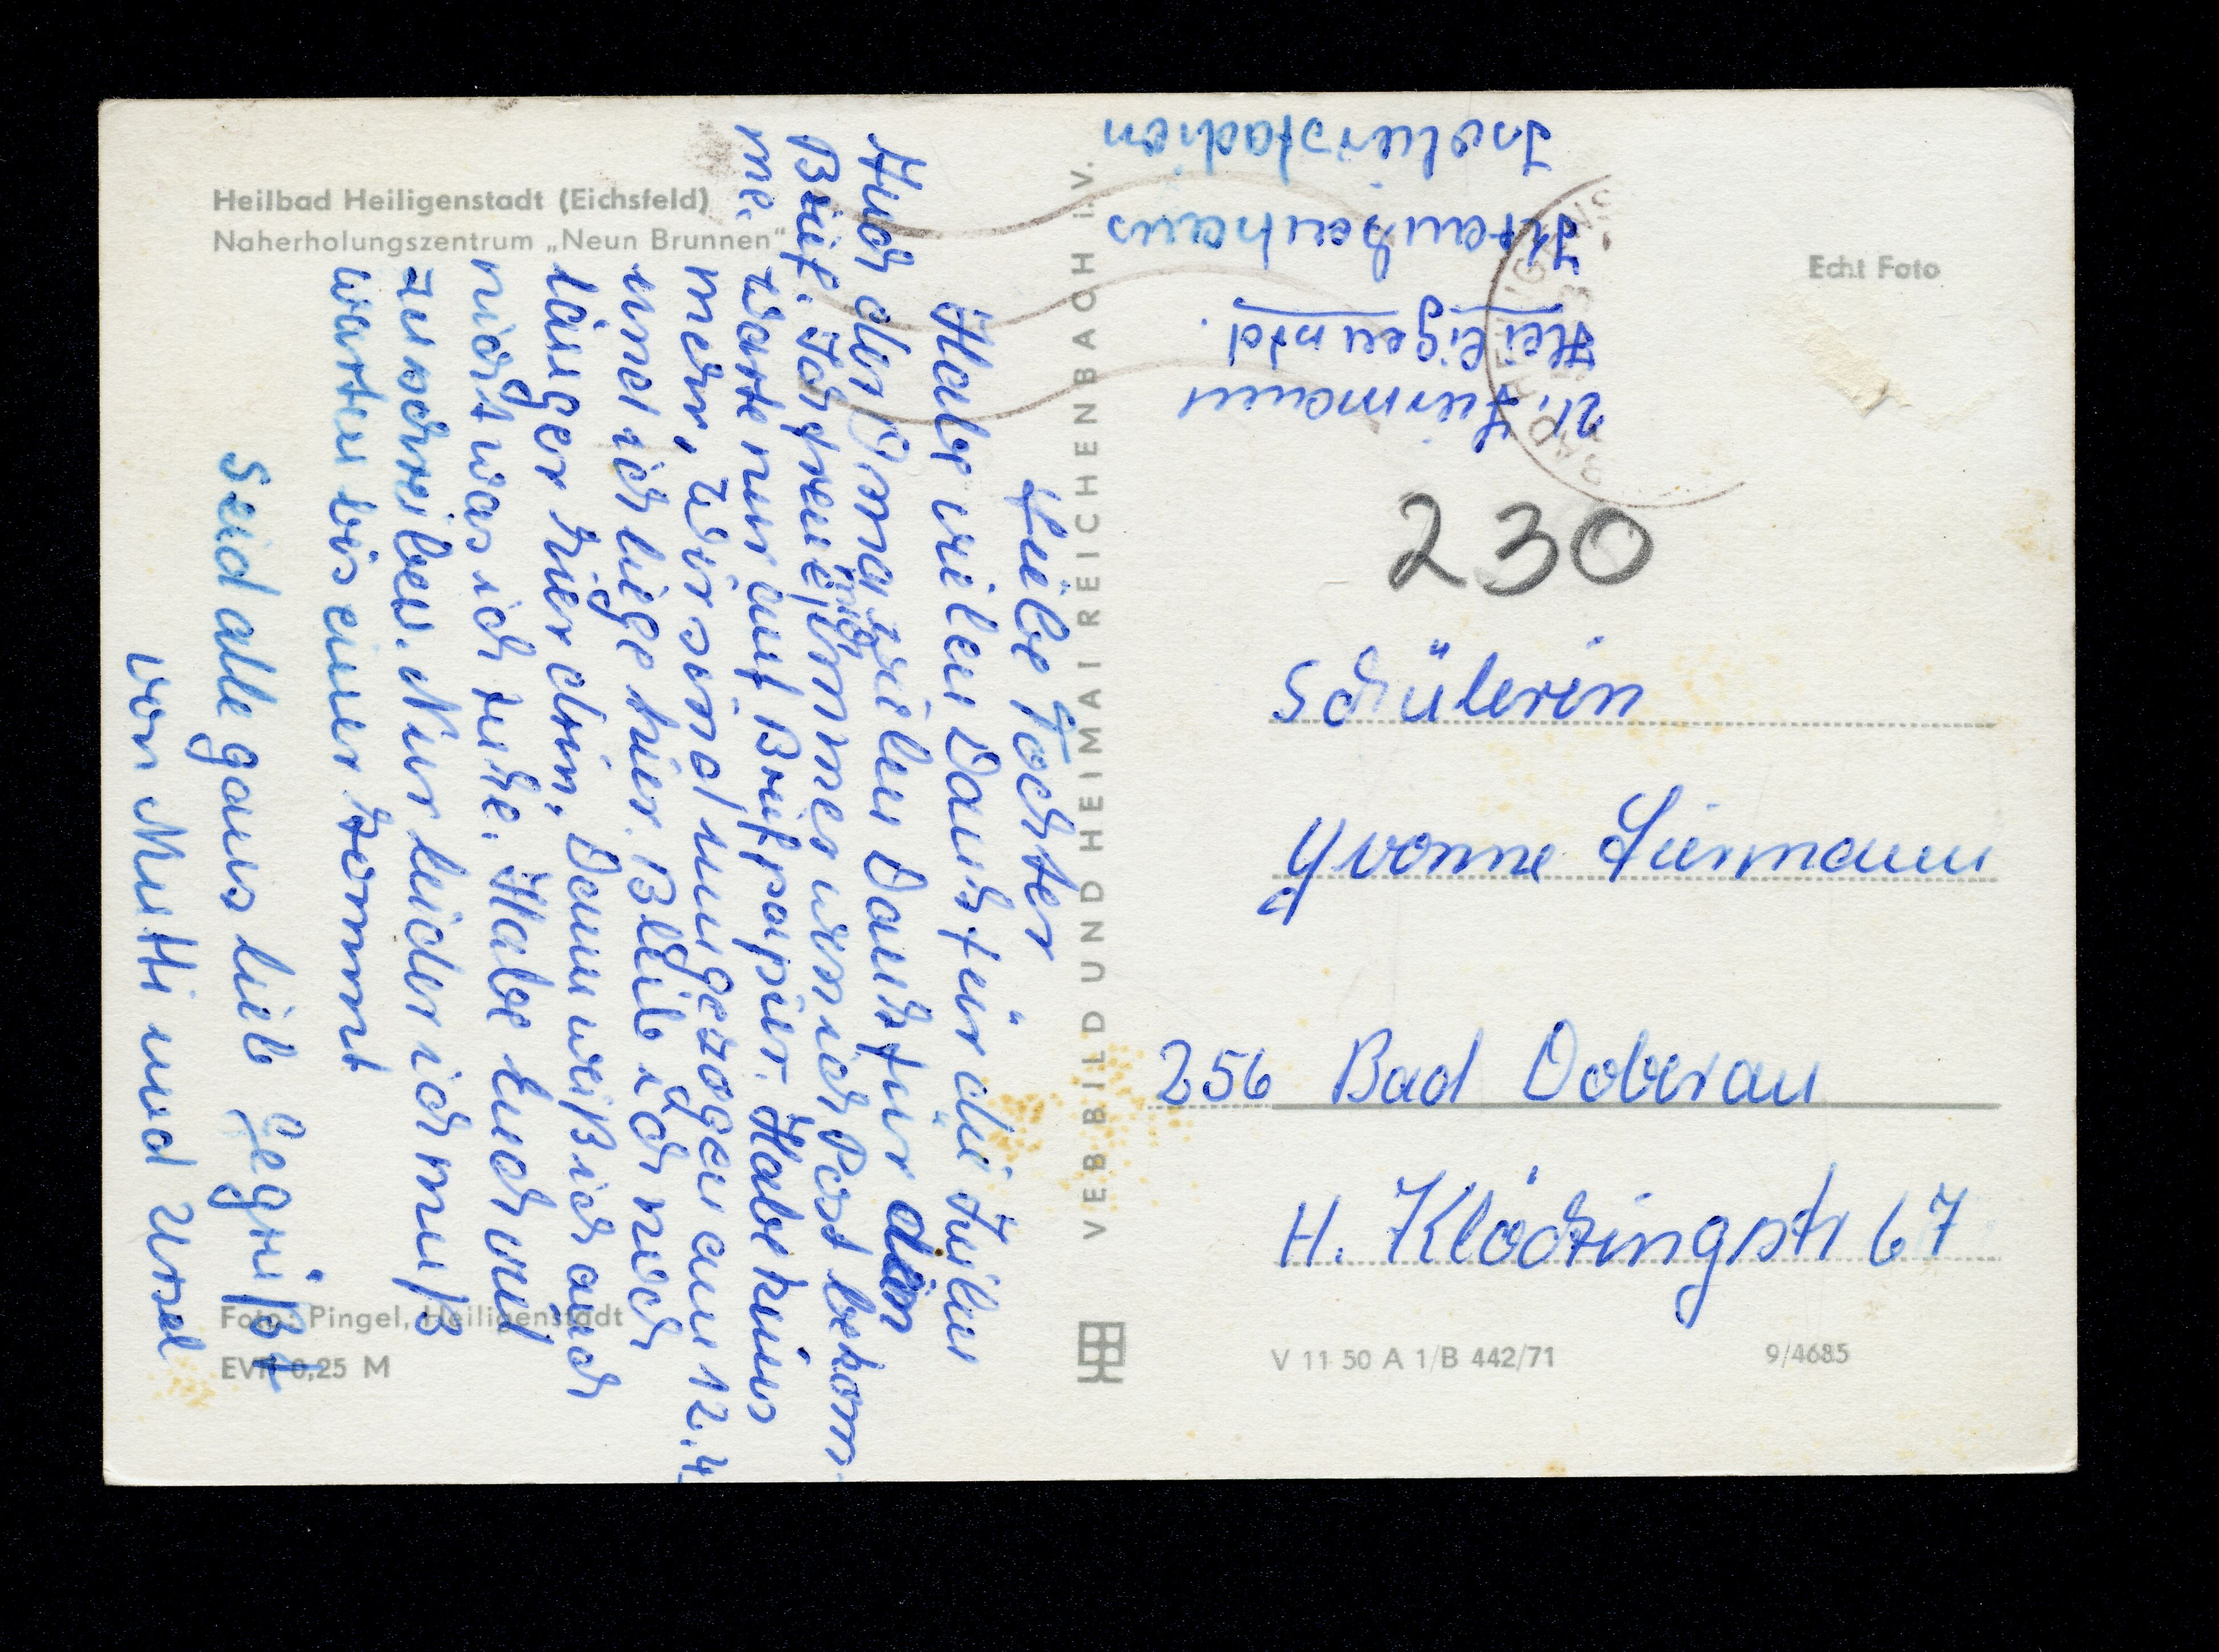 Heilbad Heiligenstadt (Eichsfeld)
Naherholungszentrum „Neun Brunnen"
Liebe Tochter
Habe vielen Dank für die Zeilen
Auch der Oma vielen Dank für den
Brief. Ich freue mich immer wenn ich Post bekom
me. Warte nur auf Briefpapier. Habe keins
mehr, wir sind umgezogen am 12.4
und ich liege hier. Bleib ich noch
länger hier drin. Dann weiß ich auch
nicht was ich tuhe. Habe Euch viel
zu schreiben. Nur leider ich muß
warten bis einer kommt
Seid alle ganz lieb gegrüßt
von Mutti und Ursel
Foto: Pingel, Heiligenstadt
EVP 0,25 M
VEB BILD UND HEIMAT REICHENBACH i. V.
U. Liermann
Heiligenstd.
Krankenhaus
Isolierstadion
Echt Foto
230
Schülerin
Yvonne Liermann
256 Bad Doberan
H. Klöckingstr 67
V 11 50 A 1/B 442/71
9/4685